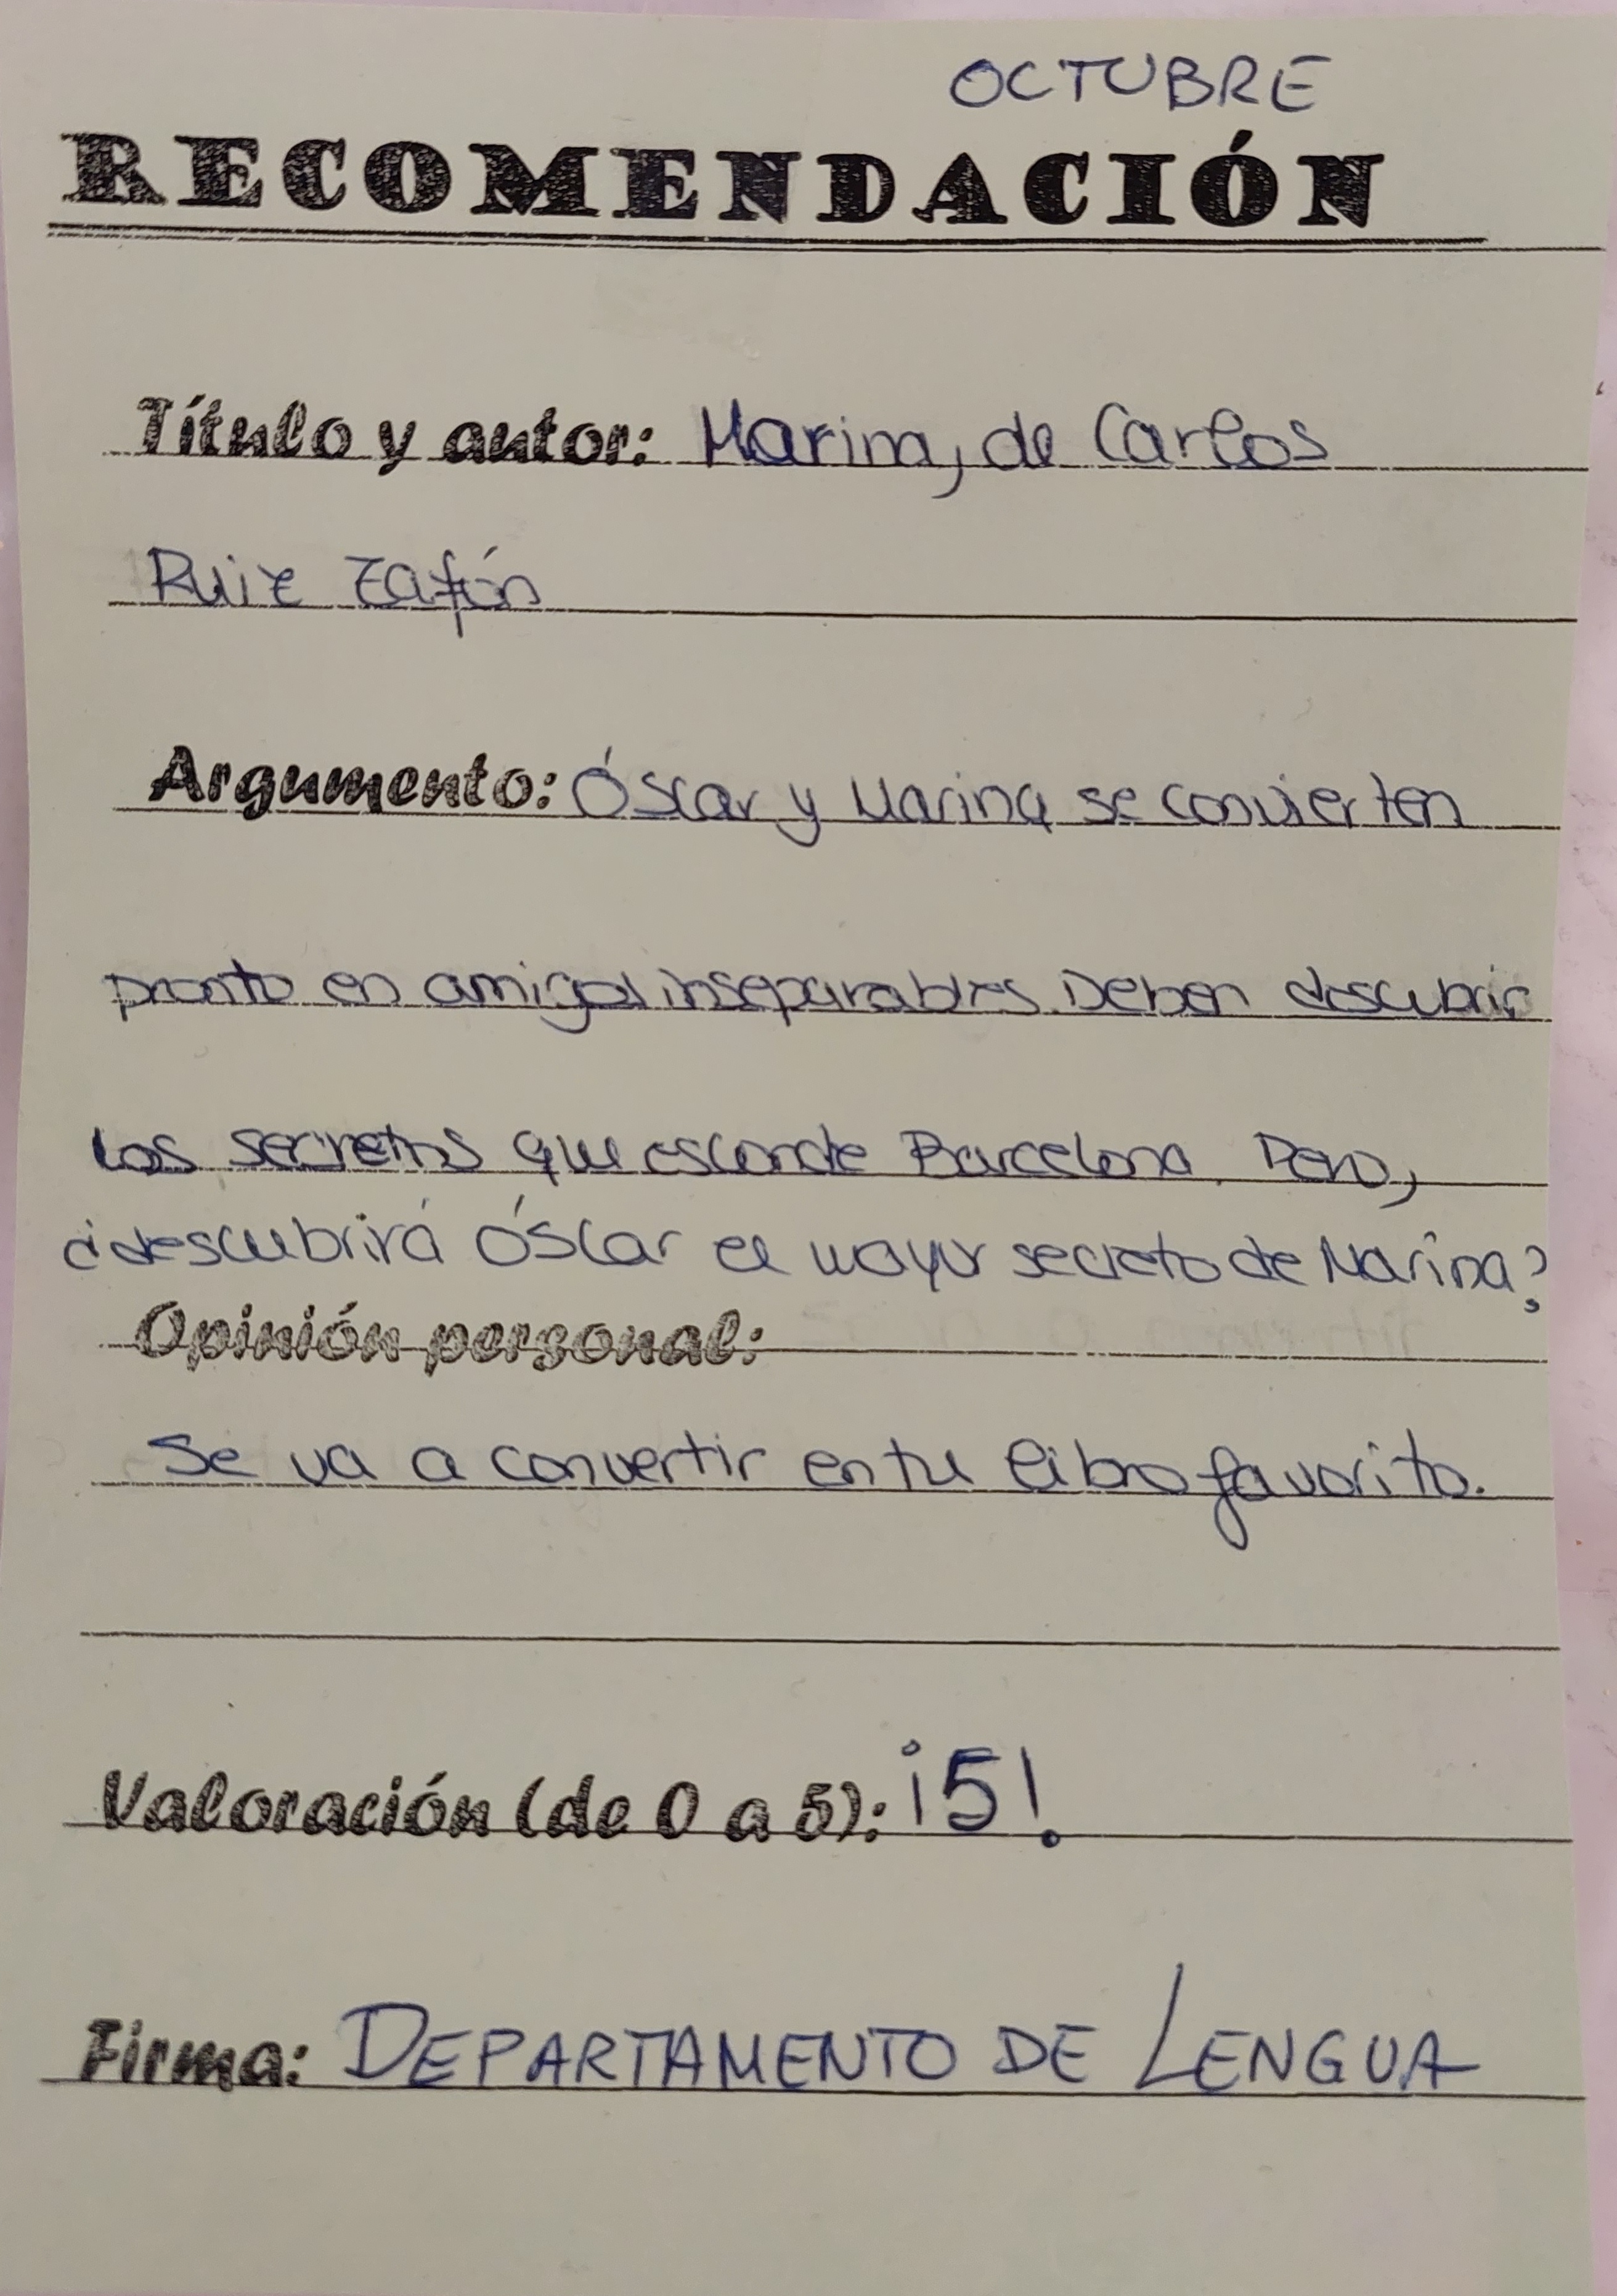 OCTUBRE
RECOMENDACIÓN
Título y autor: Marina, de Carlos
Ruiz Zafón
Argumento: Óscar y Marina se convierten
pronto en amigos inseparables. Deben descubrir
los secretos que esconde Barcelona. Pero,
¿descubrirá Óscar el mayor secreto de Marina?
Opinión personal:
Se va a convertir en tu libro favorito.
Valoración (de 0 a 5): ¡5!
Firma: DEPARTAMENTO DE LENGUA